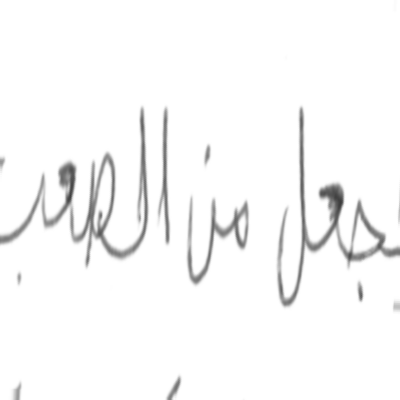 يجعل من الصعب